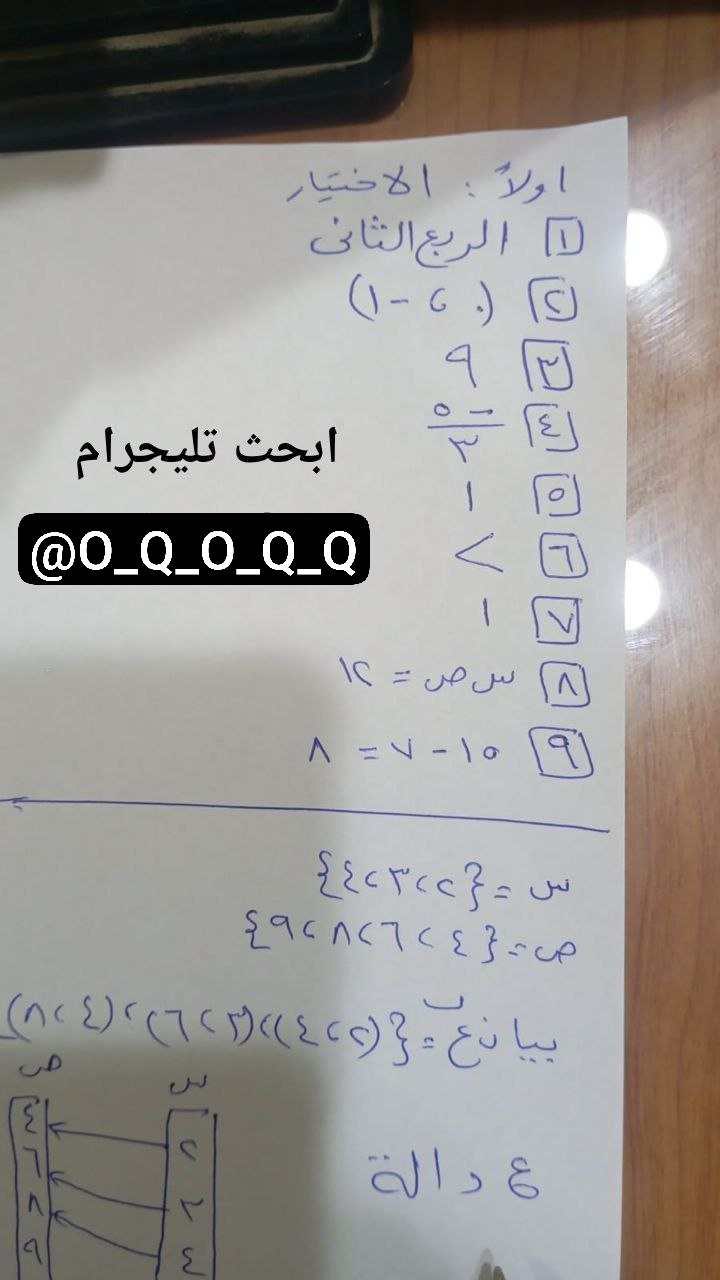 اولاً : الاختيار
١ الربع الثانى
٢ (٠ ، -١)
٣ ٩
٤ -٥/٣
٥ ١
٦ >
٧ ١
٨ س ص = ١٢
٩ ١٥ - ٧ = ٨
ابحث تليجرام
@O_Q_O_Q_Q
س = {٢،٣،٤}
ص = {٤،٦،٨،٩}
بيان ع = {(٢،٤)،(٣،٦)،(٤،٨)
ع دالة
س ص
٢ ٤
٣ ٦
٤ ٨
٩